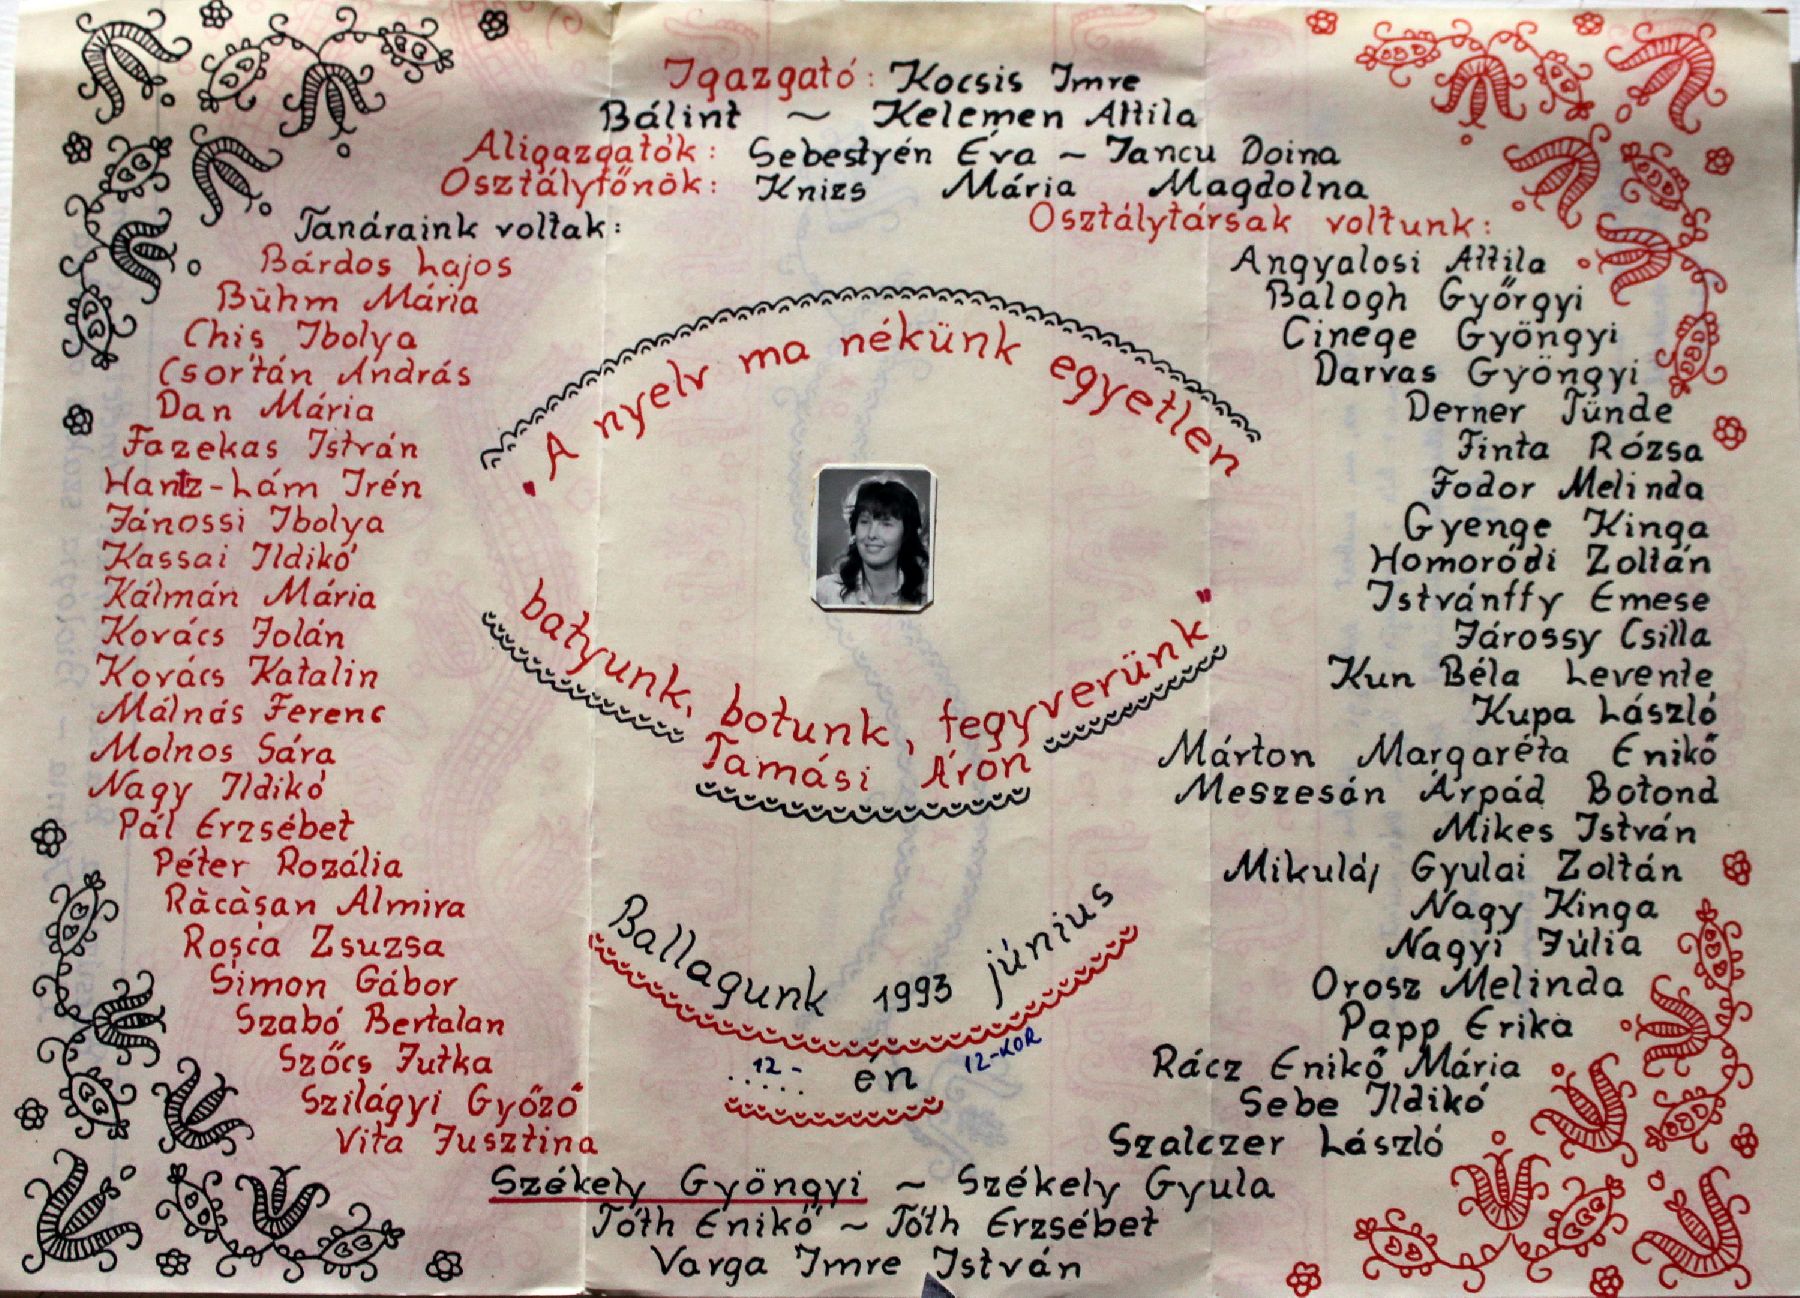 Igazgató: Kocsis Imre
Bálint ~ Kelemen Attila
Aligazgatók: Sebestyén Éva ~ Iancu Doina
Osztályfőnök: Knizs Mária Magdolna
Tanáraink voltak:
Bárdos Lajos
Bühm Mária
Chiș Ibolya
Csortán András
Dan Mária
Fazekas István
Hantz-Lám Irén
Jánossi Ibolya
Kassai Ildikó
Kálmán Mária
Kovács Jolán
Kovács Katalin
Málnás Ferenc
Molnos Sára
Nagy Ildikó
Pál Erzsébet
Péter Rozália
Răcășan Almira
Roșca Zsuzsa
Simon Gábor
Szabó Bertalan
Szőcs Jutka
Szilágyi Győző
Vita Jusztina
"A nyelv ma nékünk egyetlen
batyunk, botunk, fegyverünk"
Tamási Áron
Ballagunk 1993 június
12- én 12-KOR
Osztálytársak voltunk:
Angyalosi Attila
Balogh Györgyi
Cinege Gyöngyi
Darvas Gyöngyi
Derner Tünde
Finta Rózsa
Fodor Melinda
Gyenge Kinga
Homoródi Zoltán
Istvánffy Emese
Járossy Csilla
Kun Béla Levente
Kupa László
Márton Margaréta Enikő
Meszesán Árpád Botond
Mikes István
Mikuláj Gyulai Zoltán
Nagy Kinga
Nagyi Júlia
Orosz Melinda
Papp Erika
Rácz Enikő Mária
Sebe Ildikó
Szalczer László
Székely Gyöngyi ~ Székely Gyula
Tóth Enikő ~ Tóth Erzsébet
Varga Imre István